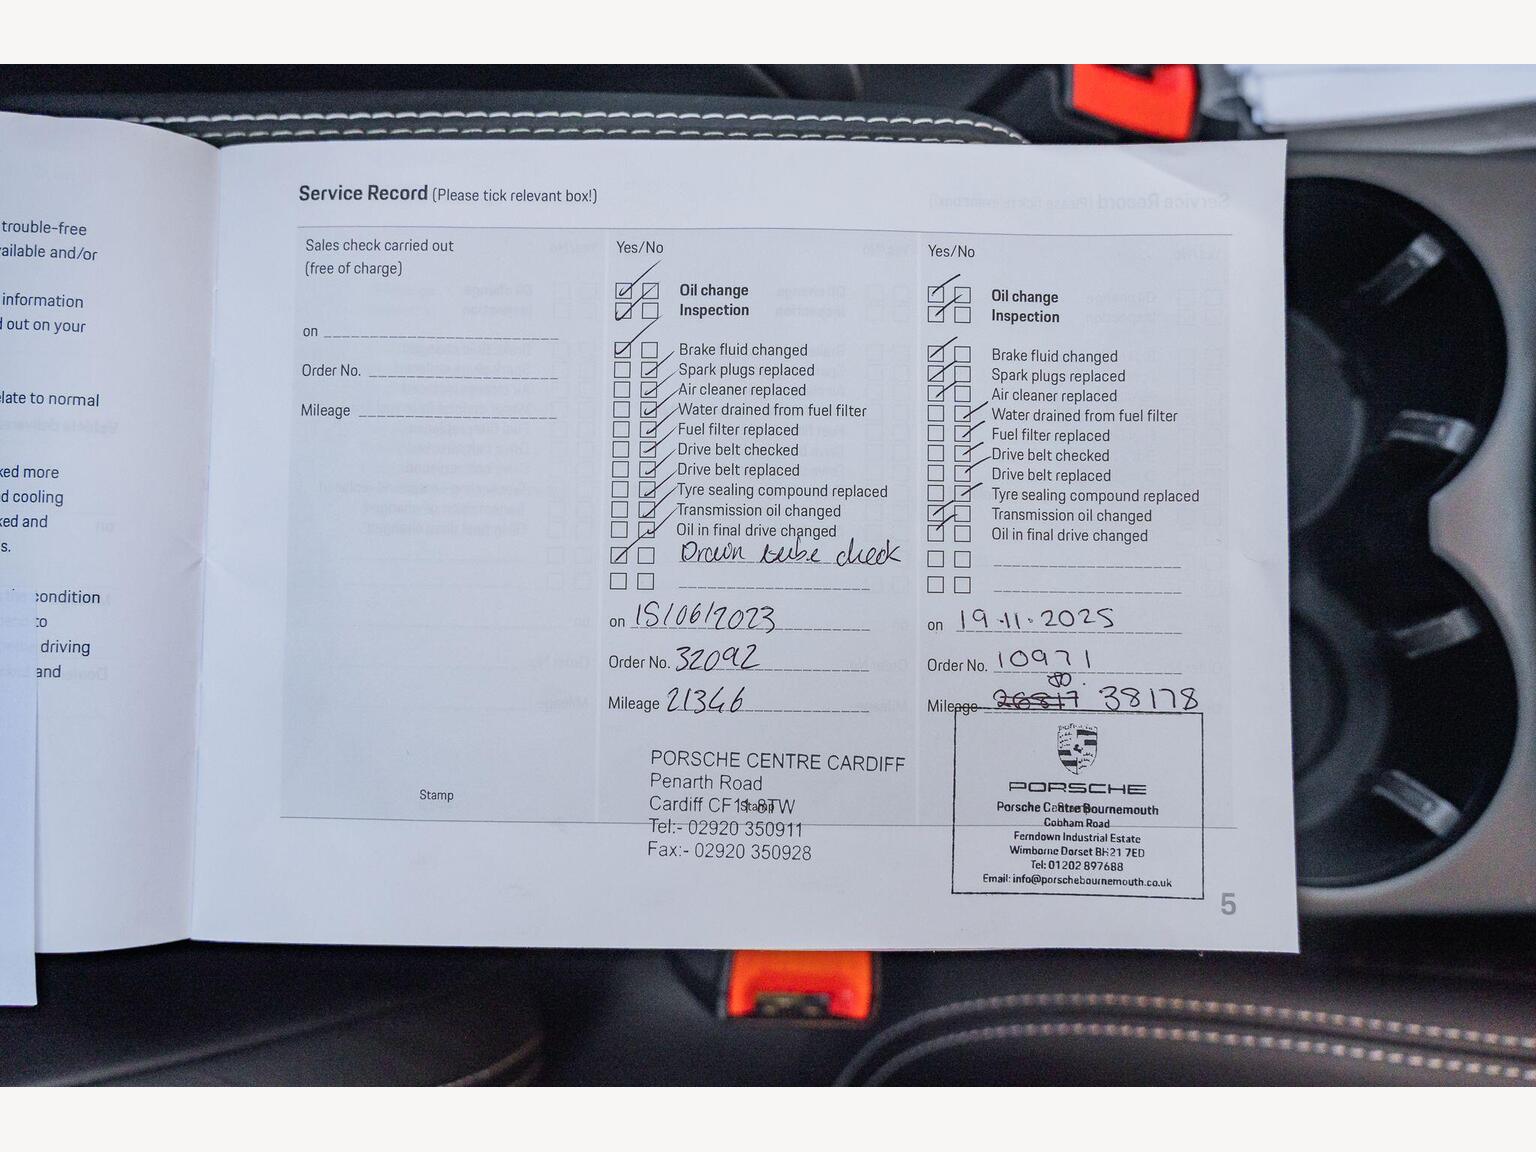 trouble-free
ailable and/or
information
d out on your
late to normal
ked more
d cooling
ked and
s.
condition
to
driving
and
Service Record (Please tick relevant box!)
Sales check carried out
(free of charge)
on
Order No.
Mileage
Stamp
Yes/No
Oil change
Inspection
Brake fluid changed
Spark plugs replaced
Air cleaner replaced
Water drained from fuel filter
Fuel filter replaced
Drive belt checked
Drive belt replaced
Tyre sealing compound replaced
Transmission oil changed
Oil in final drive changed
Drain tube check
on 15/06/2023
Order No. 32092
Mileage 21346
PORSCHE CENTRE CARDIFF
Penarth Road
Cardiff CF11 8TW
Stamp
Tel:- 02920 350911
Fax:- 02920 350928
Yes/No
Oil change
Inspection
Brake fluid changed
Spark plugs replaced
Air cleaner replaced
Water drained from fuel filter
Fuel filter replaced
Drive belt checked
Drive belt replaced
Tyre sealing compound replaced
Transmission oil changed
Oil in final drive changed
on 19.11.2025
Order No. 10971
Mileage 26817 38178
PORSCHE
Porsche Centre Bournemouth
Cobham Road
Ferndown Industrial Estate
Wimborne Dorset BH21 7ED
Tel: 01202 897688
Email: info@porschebournemouth.co.uk
5